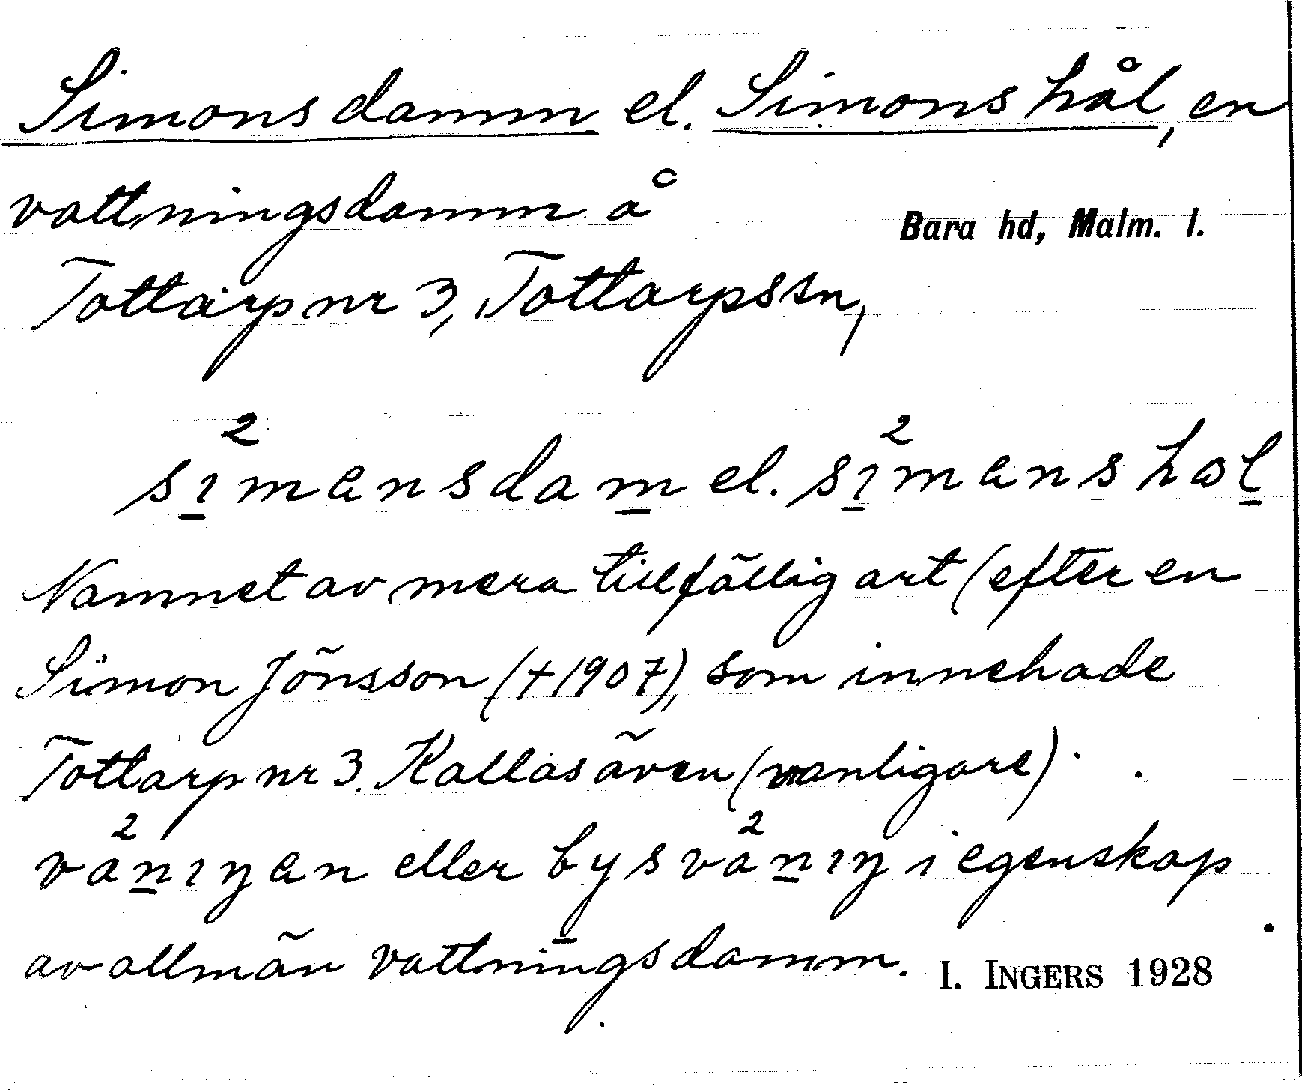 Simons damm el. Simons hål, en
vattningsdamm å
Bara hd, Malm. l.
Tottarp nr 3, Tottarps sn,
sı̱²mansdam̱ el. sı̱²manshωḻ
Namnet av mera tillfällig art (efter en
Simon Jönsson (+1907), som innehade
Tottarp nr 3. Kallas även (vanligare)
va²ṉıŋan eller bysva²ṉıŋ i egenskap
av allmän vattningsdamm.
I. INGERS 1928